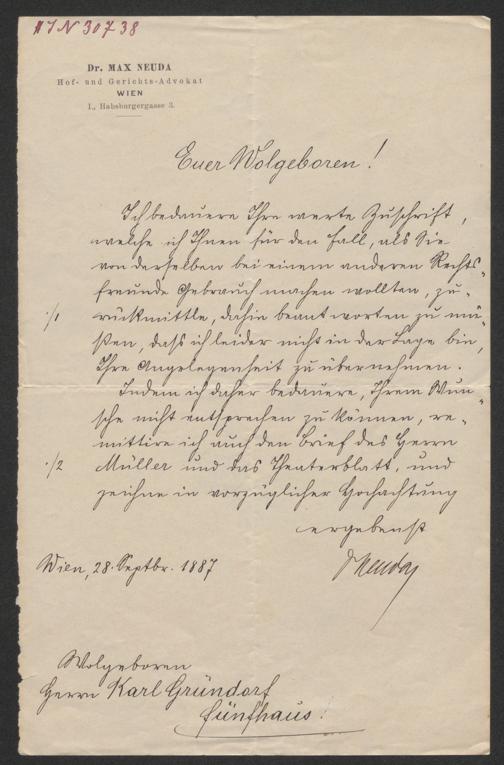 IN 30738
Dr. MAX NEUDA
Hof- und Gerichts-Advokat
WIEN
I., Habsburgergasse 3.
Euer Wolgeboren!
Ich bedauere Ihre werte Zuschrift,
welche ich Ihnen für den Fall, als Sie
von derselben bei einem anderen Rechts-
freunde Gebrauch machen wollten, zu-
./1 rückmittle, dahin beantworten zu mü-
ßen, daß ich leider nicht in der Lage bin,
Ihre Angelegenheit zu übernehmen.
Indem ich daher bedauere, Ihrem Wun-
sche nicht entsprechen zu können, re-
mittire ich auch den Brief des Herrn
./2 Müller und das Theaterblatt, und
zeichne in vorzüglicher Hochachtung
ergebenst
Wien, 28. Septbr. 1887
Neuda
Wolgeboren
Herrn Karl Gründorf
Fünfhaus.